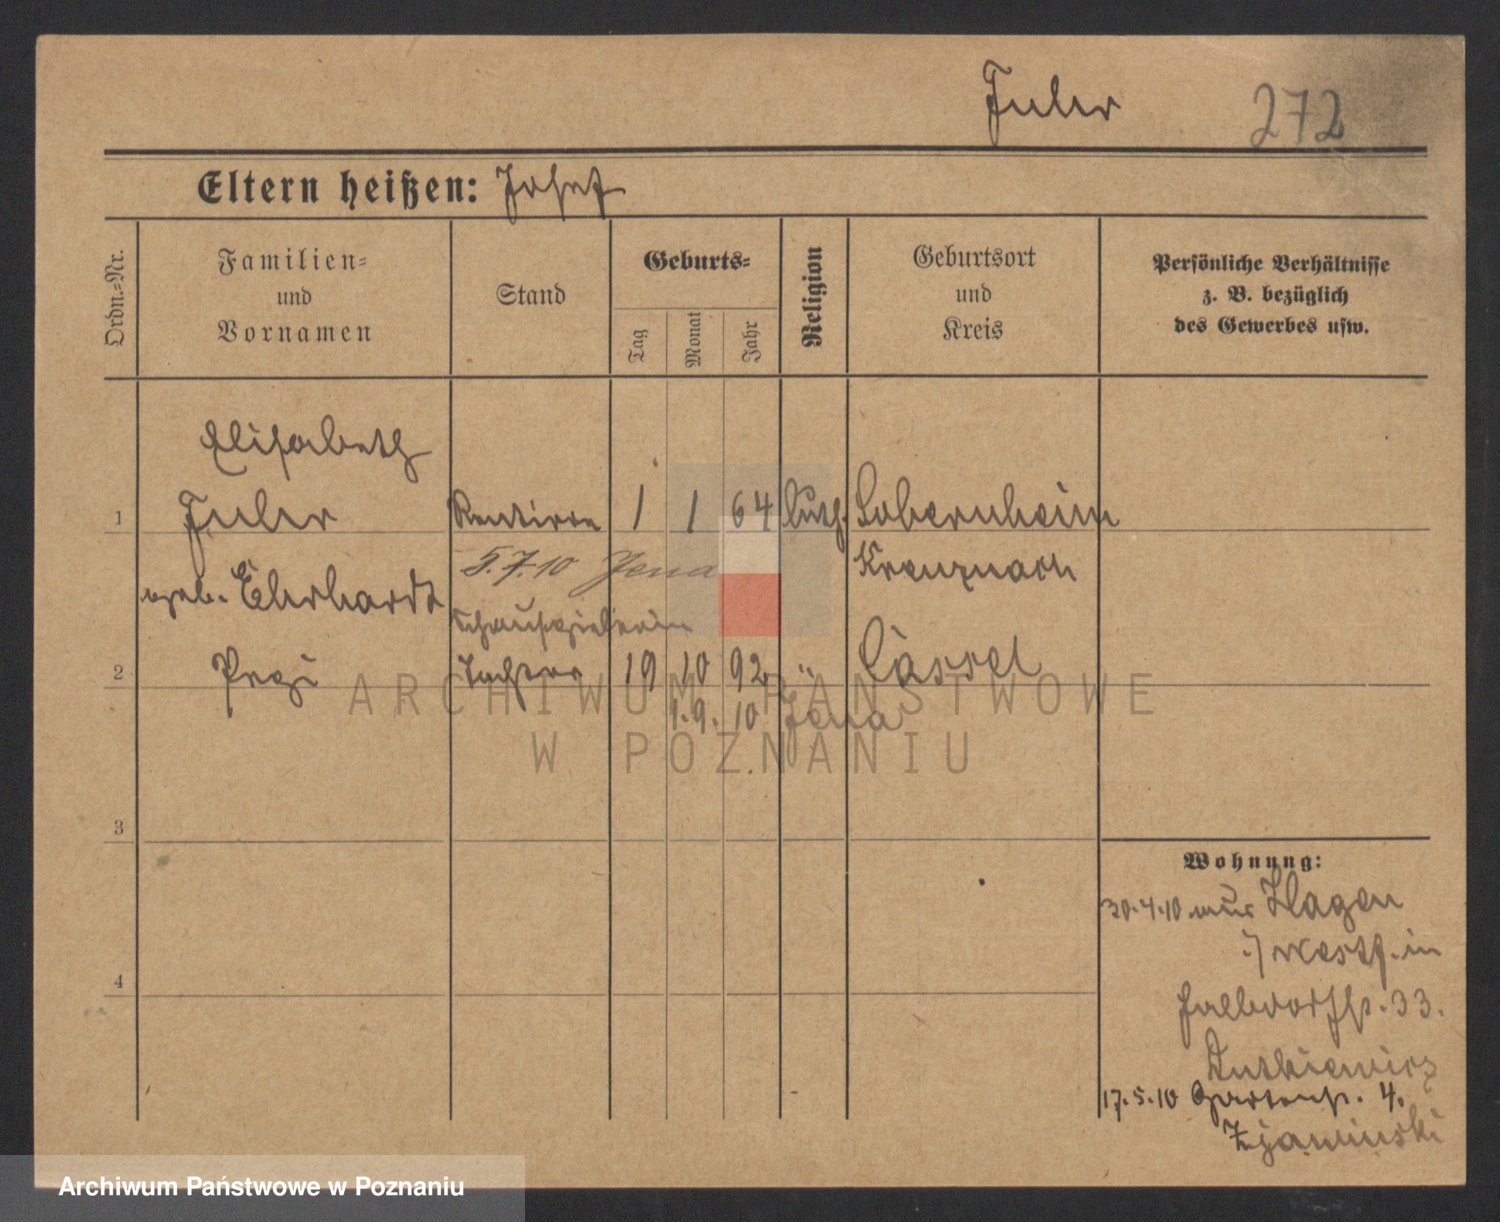 Juler 272
Eltern heißen: Josef
Ordn.-Nr.
Familien-
und
Vornamen
Stand
Geburts-
Tag
Monat
Jahr
Religion
Geburtsort
und
Kreis
Persönliche Verhältnisse
z. B. bezüglich
des Gewerbes usw.
Elisabeth
1 Juler Rentiere 1 1 64 luth. Sobernheim
5.7.10 Jena Kreuznach
geb. Ehrhardt
Schauspielerin
2 Tochter 19 10 92 " Cassel
1.9.10 Jena
3
4
Wohnung:
30.4.10 aus Hagen
i/Westf. in
33.
Rutkiewicz
17.5.10 Gartenstr. 4.
Zjawinski
ARCHIWUM PAŃSTWOWE
W POZNANIU
Archiwum Państwowe w Poznaniu